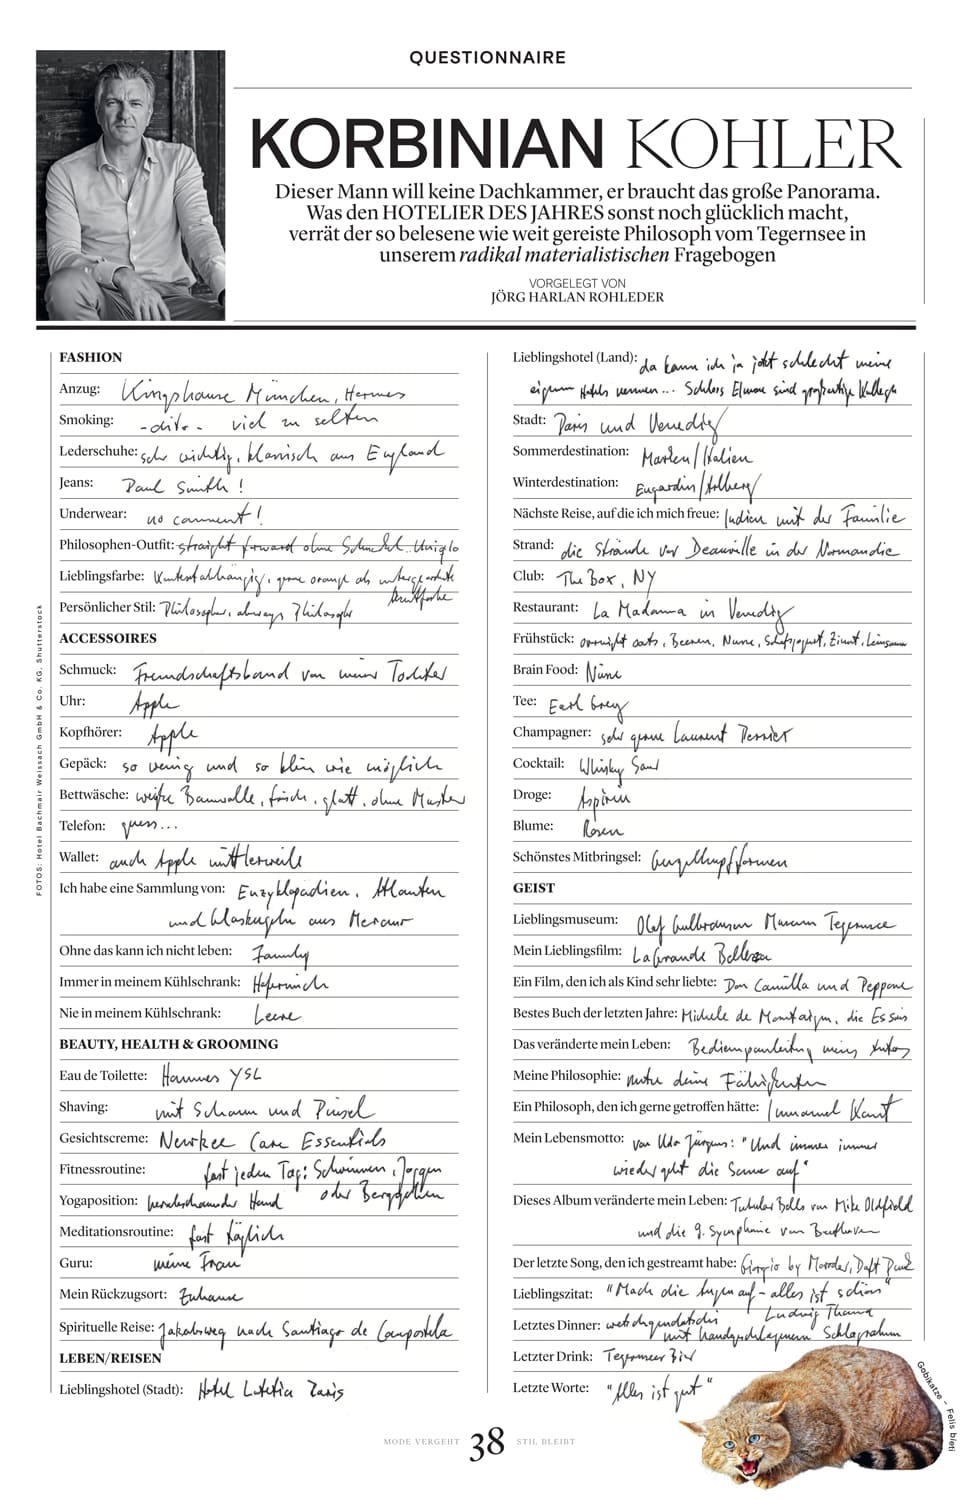 QUESTIONNAIRE
KORBINIAN KOHLER
Dieser Mann will keine Dachkammer, er braucht das große Panorama.
Was den HOTELIER DES JAHRES sonst noch glücklich macht,
verrät der so belesene wie weit gereiste Philosoph vom Tegernsee in
unserem radikal materialistischen Fragebogen
VORGELEGT VON
JÖRG HARLAN ROHLEDER
FOTOS: Hotel Bachmair Weissach GmbH & Co. KG, Shutterstock
FASHION
Anzug: Kingshouse München, Hermes
Smoking: -dito- viel zu selten
Lederschuhe: sehr wichtig, klassisch aus England
Jeans: Paul Smith!
Underwear: no comment!
Philosophen-Outfit: straight forward ohne Schnickel.. Uniqlo
Lieblingsfarbe: Kontextabhängig, gerne orange als untergeordnete
Druckfarbe
Persönlicher Stil: Philosopher, always Philosopher
ACCESSOIRES
Schmuck: Freundschaftsband von meiner Tochter
Uhr: Apple
Kopfhörer: Apple
Gepäck: so wenig und so klein wie möglich
Bettwäsche: weiße Baumwolle, frisch, glatt, ohne Muster
Telefon: guess...
Wallet: auch Apple mittlerweile
Ich habe eine Sammlung von: Enzyklopädien, Atlanten
und Glaskugeln aus Murano
Ohne das kann ich nicht leben: Family
Immer in meinem Kühlschrank: Hafermilch
Nie in meinem Kühlschrank: Leere
BEAUTY, HEALTH & GROOMING
Eau de Toilette: Hammes YSL
Shaving: mit Schaum und Pinsel
Gesichtscreme: Care Essentials
Fitnessroutine: fast jeden Tag: Schwimmen, Joggen
oder Berggehen
Yogaposition: herabschauender Hund
Meditationsroutine: fast täglich
Guru: meine Frau
Mein Rückzugsort: Zuhause
Spirituelle Reise: Jakobsweg nach Santiago de Compostela
LEBEN/REISEN
Lieblingshotel (Stadt): Hotel Lutetia Paris
Lieblingshotel (Land): da kann ich ja jetzt schlecht meine
eigenen Hotels nennen... Schloss Elmau sind großartige Kollegen
Stadt: Paris und Venedig
Sommerdestination: Marken/Italien
Winterdestination: Engardin/Arlberg
Nächste Reise, auf die ich mich freue: Indien mit der Familie
Strand: die Strände vor Deauville in der Normandie
Club: The Box, NY
Restaurant: La Madonna in Venedig
Frühstück: overnight oats, Beeren, Nüsse, Schafsjoghurt, Zimt, Leinsamen
Brain Food: Nüsse
Tee: Earl Grey
Champagner: sehr gerne Laurent Perrier
Cocktail: Whisky Sour
Droge: Aspirin
Blume: Rosen
Schönstes Mitbringsel: Gugelhupfformen
GEIST
Lieblingsmuseum: Olaf Gulbransson Museum Tegernsee
Mein Lieblingsfilm: La Grande Bellezza
Ein Film, den ich als Kind sehr liebte: Don Camillo und Peppone
Bestes Buch der letzten Jahre: Michele de Montaigne, die Essais
Das veränderte mein Leben: Bedienungsanleitung meines Autos
Meine Philosophie: nutze deine Fähigkeiten
Ein Philosoph, den ich gerne getroffen hätte: Immanuel Kant
Mein Lebensmotto: von Udo Jürgens: "Und immer immer
wieder geht die Sonne auf"
Dieses Album veränderte mein Leben: Tubular Bells von Mike Oldfield
und die 9. Symphonie von Beethoven
Der letzte Song, den ich gestreamt habe: Giorgio by Moroder, Daft Punk
Lieblingszitat: "Mach die Augen auf - alles ist schön"
Ludwig Thoma
Letztes Dinner:
mit handgeschlagenem Schlagrahm
Letzter Drink: Tegernseer Bier
Letzte Worte: "Alles ist gut"
Gobikatze – Felis bieti
MODE VERGEHT 38 STIL BLEIBT